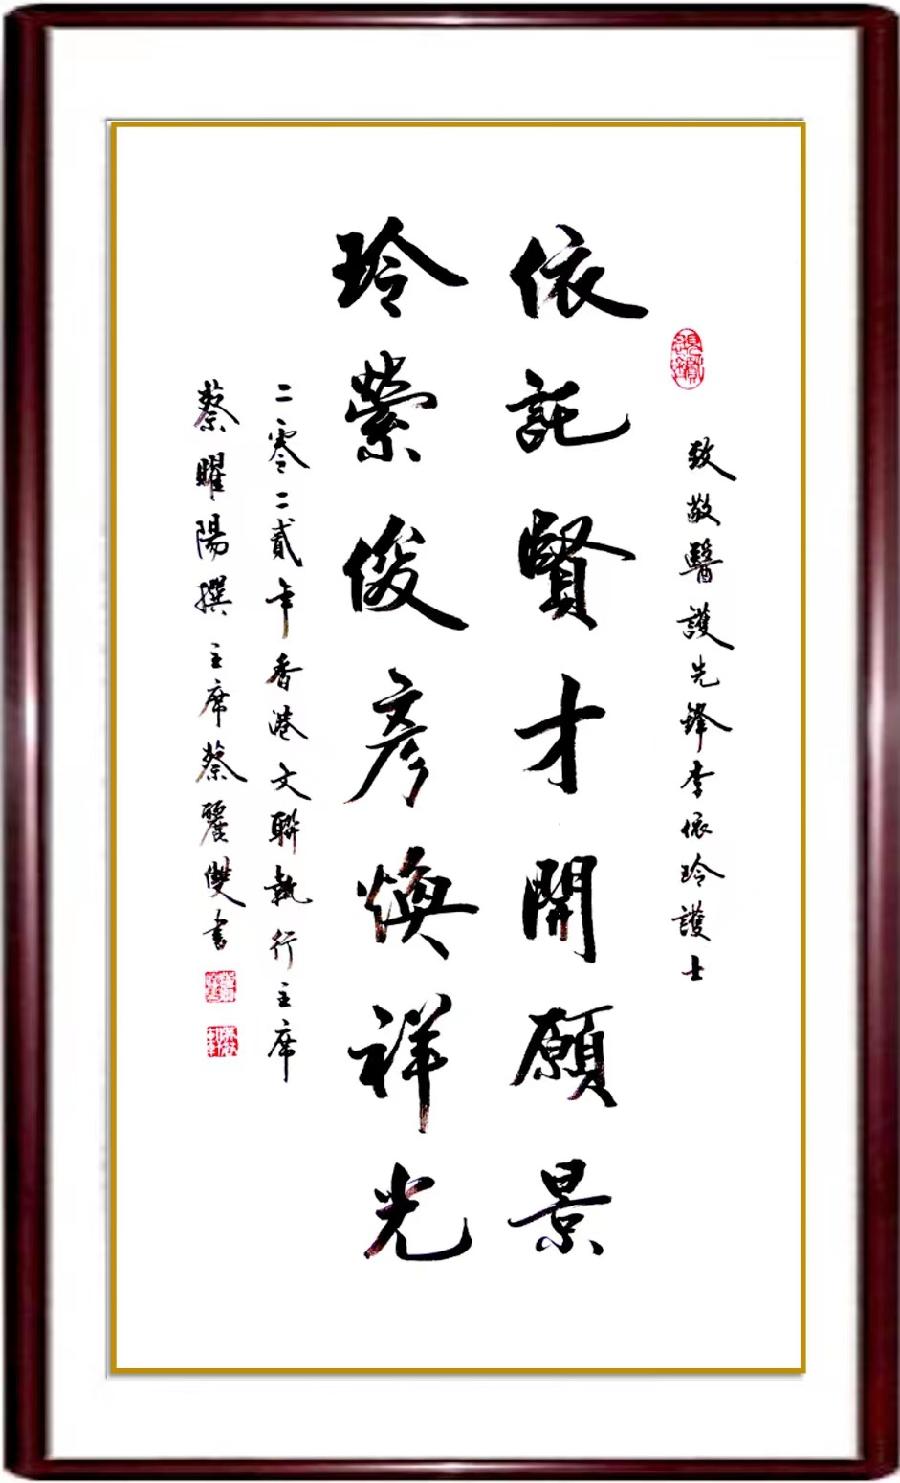 致敬醫護先鋒李依玲護士
依託賢才開願景
玲縈俊彥煥祥光
二零二貳年香港文聯執行主席
蔡曜陽撰主席蔡麗雙書